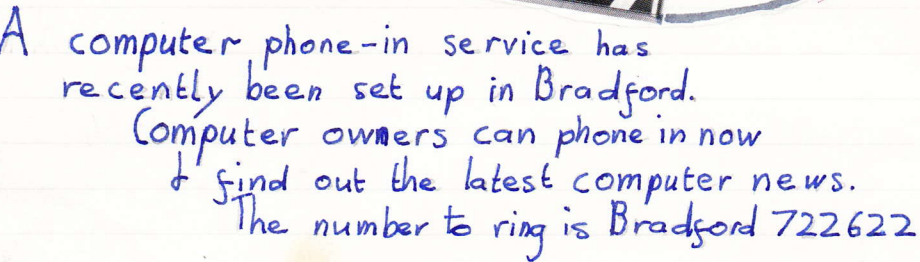 A computer phone-in service has
recently been set up in Bradford.
Computer owners can phone in now
& find out the latest computer news.
The number to ring is Bradford 722622